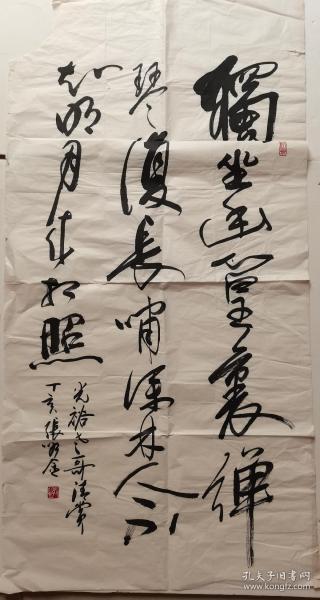 獨坐幽篁裏彈
琴復長嘯深林人不
知明月來相照
光裕老哥清賞
丁亥張
孔夫子旧书网